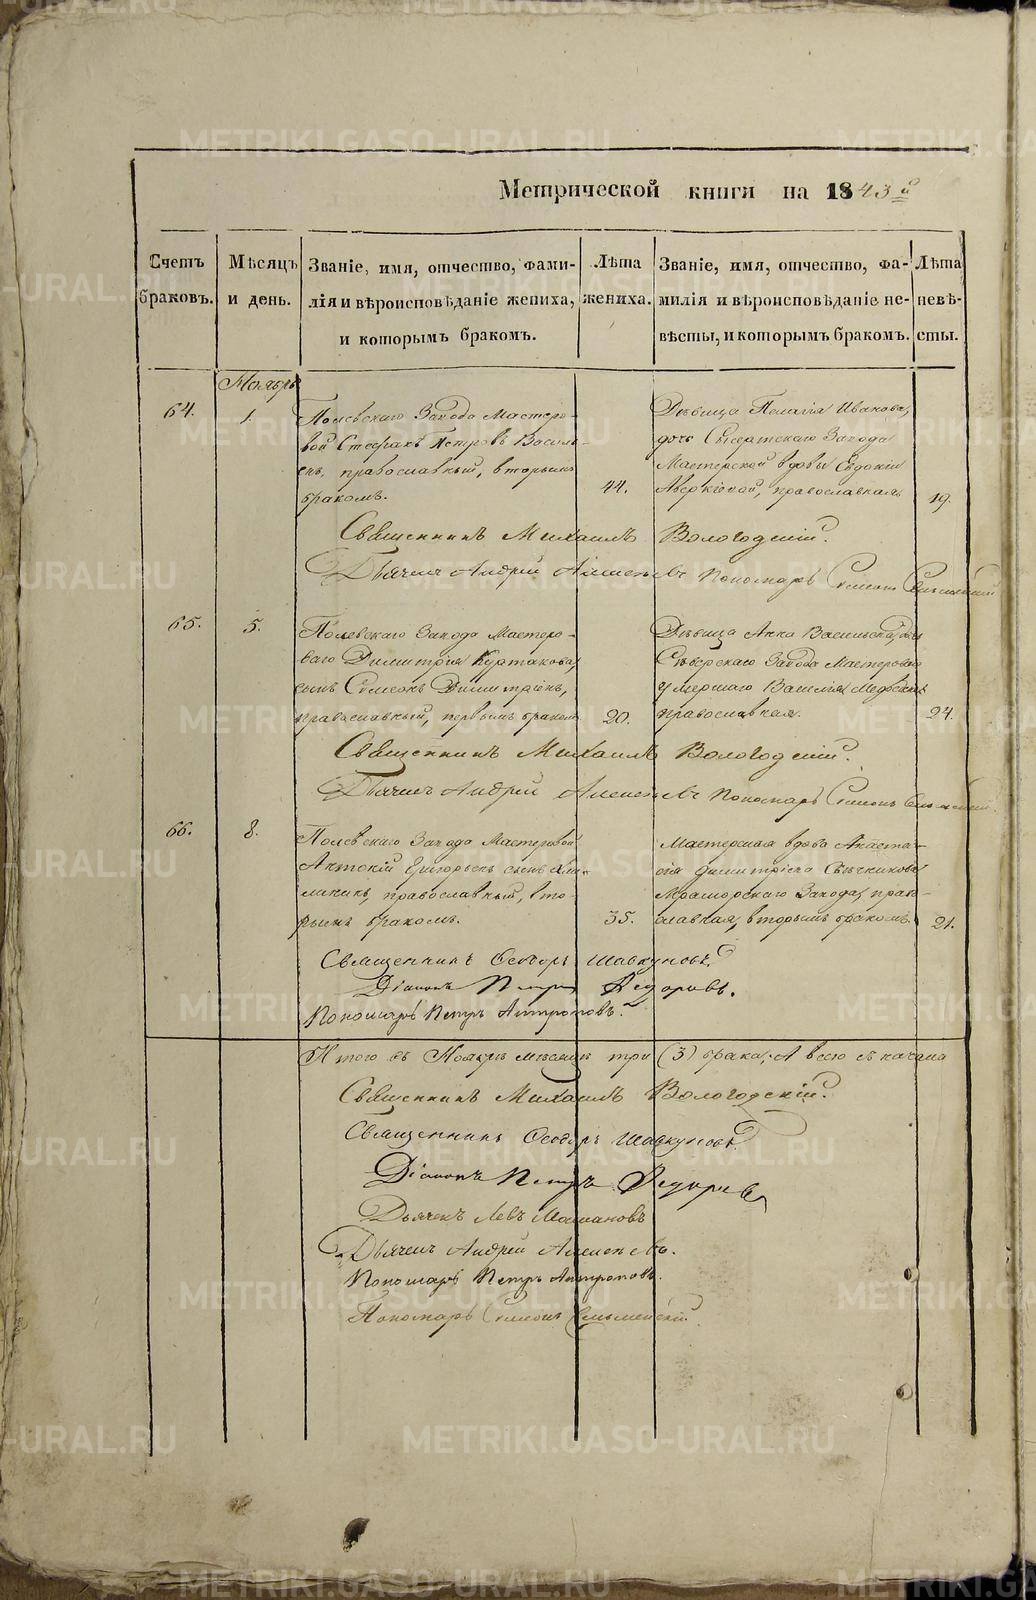 Метрической книги на 1843й
Счетъ браковъ.
Мѣсяцъ и день.
Званіе, имя, отчество, фами-
лія и вѣроисповѣданіе жениха,
и которымъ бракомъ.
Лѣта жениха.
Званіе, имя, отчество, фа-
милія и вѣроисповѣданіе не-
вѣсты, и которымъ бракомъ.
Лѣта невѣ-
сты.
Ноябрь
64.
1.
Полевскаго Завода Мастеро-
вой Стефанъ Петровъ
православный, вторымъ
бракомъ.
44.
Дѣвица Пелагія Иванова,
дочь Сысертскаго Завода
Мастерской вдовы Евдокіи
православная
19.
Священникъ Михаилъ Вологодскій.
Дьячекъ Андрей Пономарь Симеонъ
65.
5.
Полевскаго Завода Мастеро-
ваго Димитрія Куртакова,
сынъ Симеонъ Димитріевъ,
православный, первымъ бракомъ
20.
Дѣвица Анна Васильева, дочь
Сѣверскаго Завода Мастероваго
умершаго Василія
православная.
24.
Священникъ Михаилъ Вологодскій.
Дьячекъ Андрей Пономарь Симеонъ
66.
8.
Полевскаго Завода Мастеровой
Григорьевъ сынъ
православный, вто-
рымъ бракомъ.
35.
Мастерская вдова Анаста-
сія Димитріева
Мраморскаго Завода, право-
славная, вторымъ бракомъ.
21.
Священникъ Ѳеодоръ Шавкуновъ.
Діаконъ Петръ Ѳедоровъ.
Пономарь Петръ Антроповъ.
Итого въ Ноябрѣ мѣсяцѣ три (3) брака; А всего съ начала
Священникъ Михаилъ Вологодскій.
Священникъ Ѳеодоръ Шавкуновъ.
Діаконъ Петръ Ѳедоровъ
Дьячекъ Левъ
Дьячекъ Андрей
Пономарь Петръ Антроповъ.
Пономарь Симеонъ
METRIKI.GASO-URAL.RU